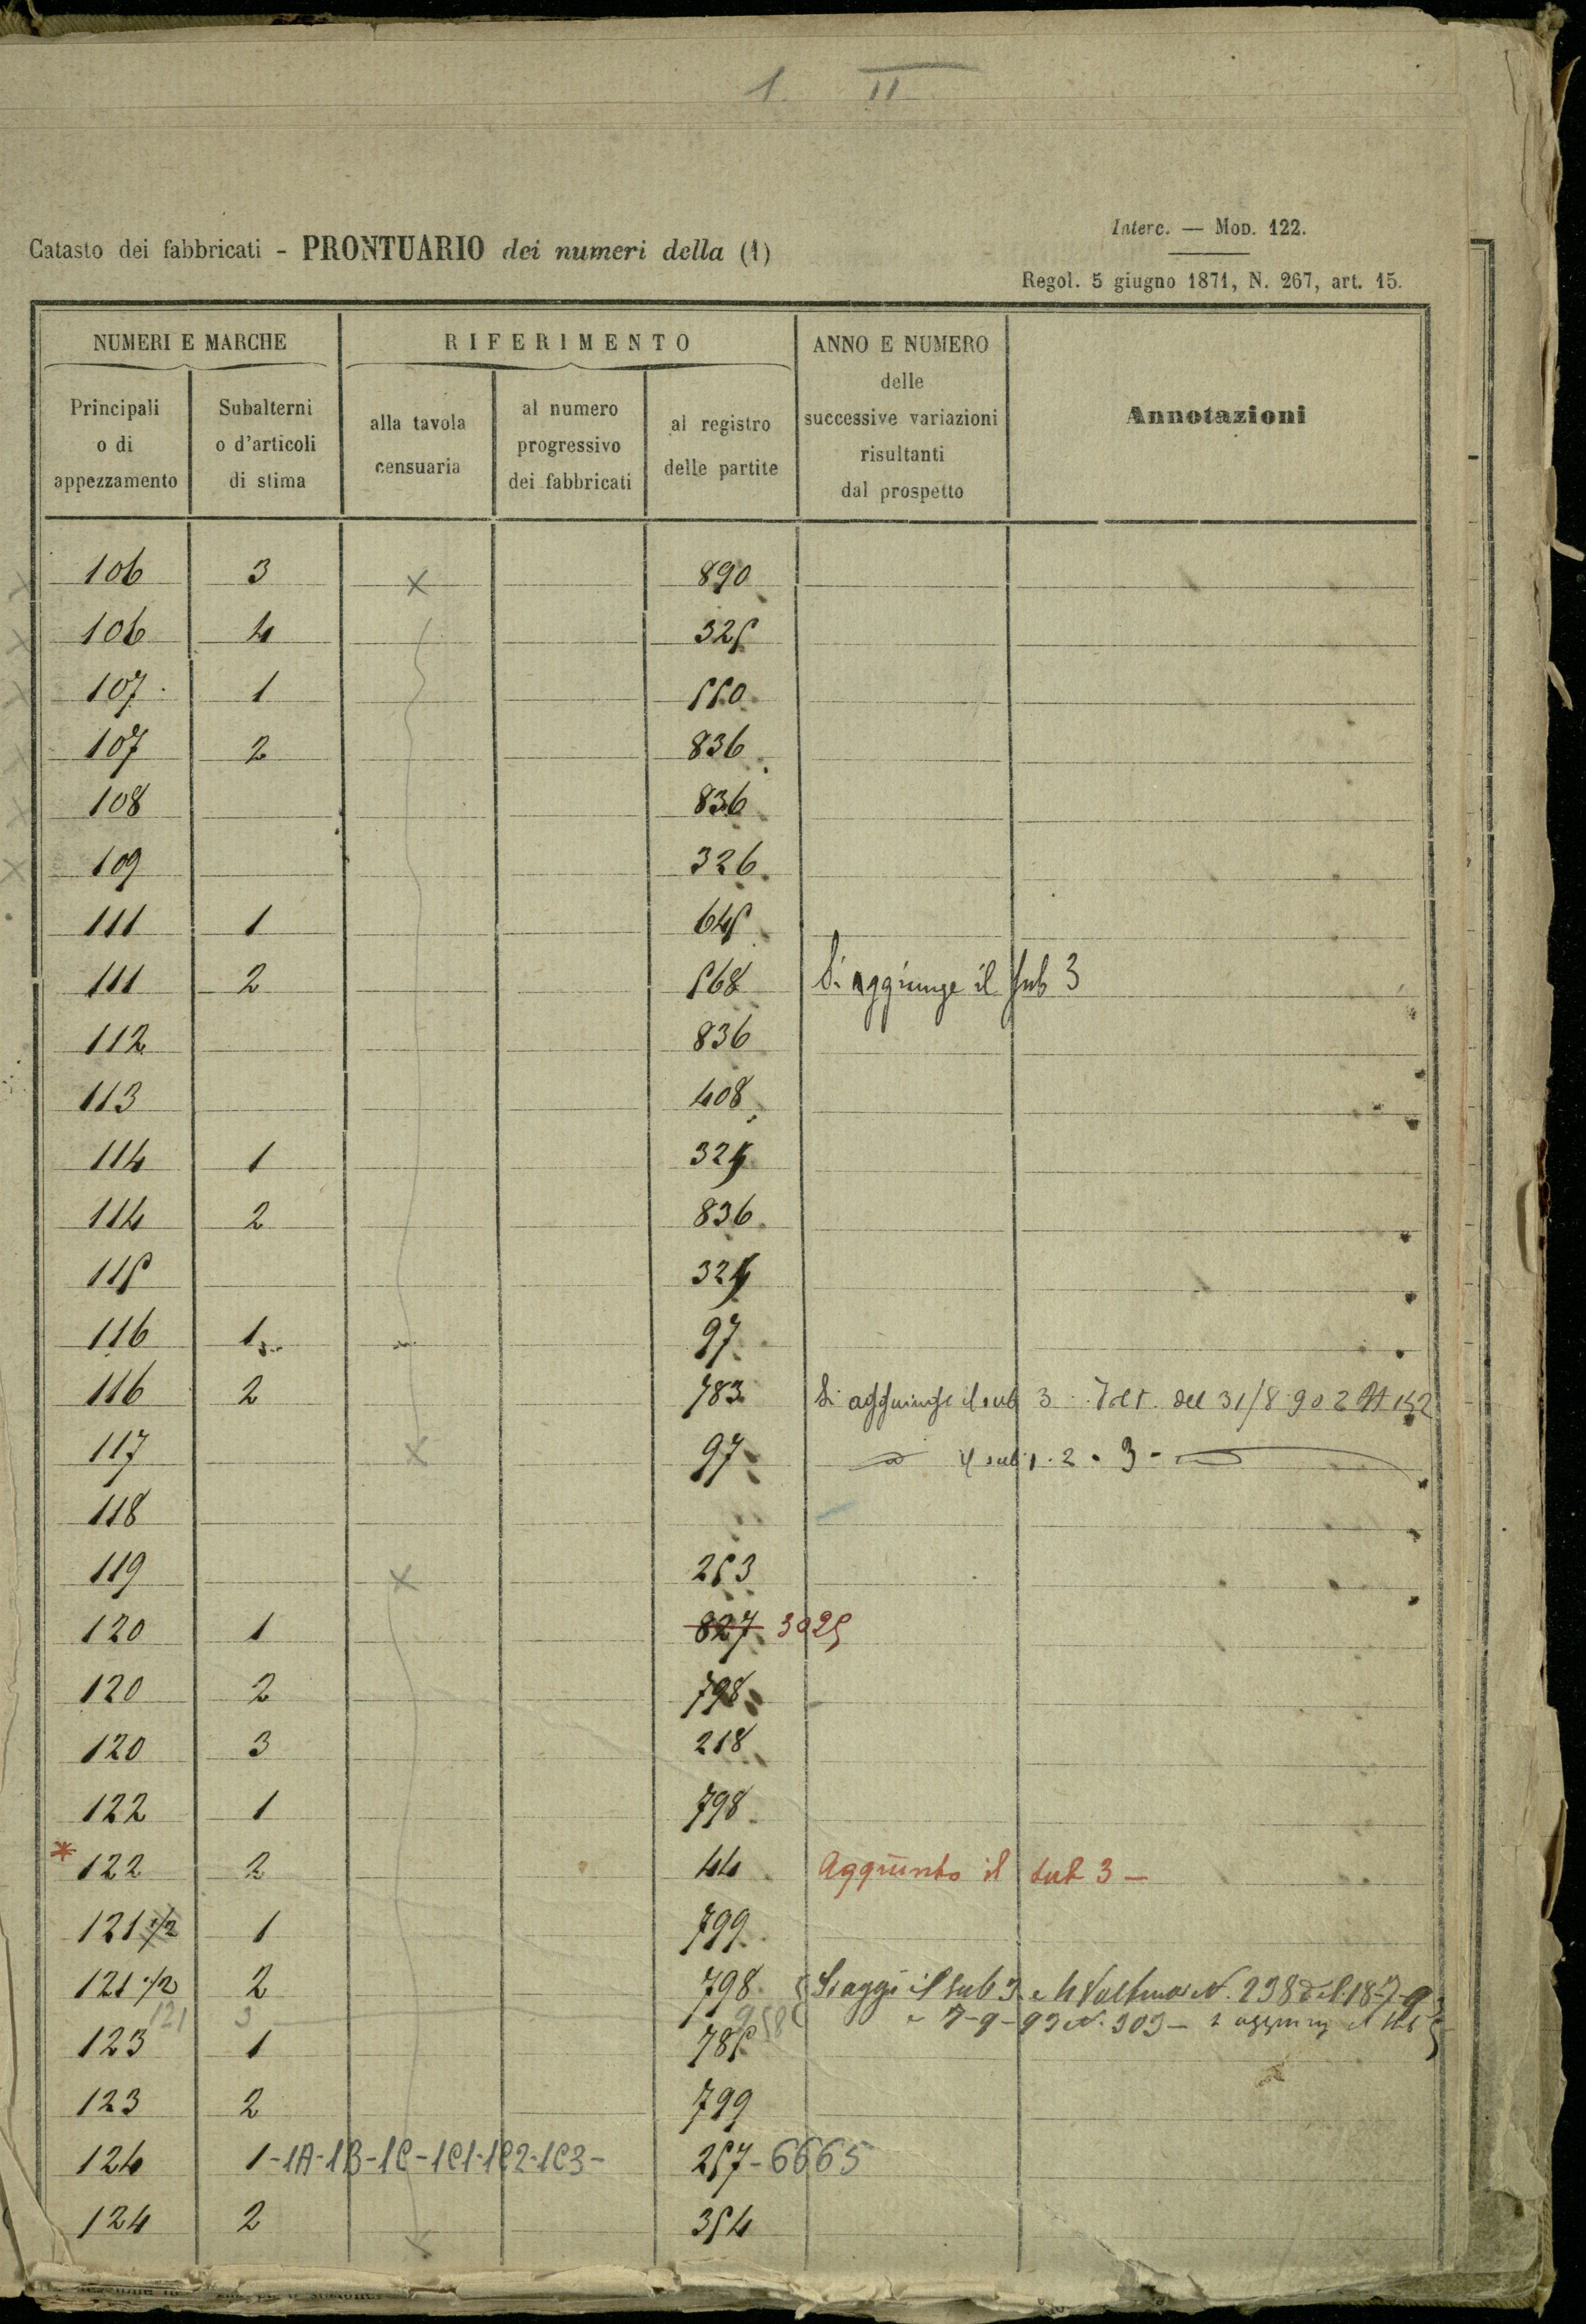 1 II
Interc. — Mod. 122.
Catasto dei fabbricati - PRONTUARIO dei numeri della (1)
Regol. 5 giugno 1871, N. 267, art. 15.
NUMERI E MARCHE RIFERIMENTO ANNO E NUMERO delle successive variazioni risultanti dal prospetto Annotazioni
Principali o di appezzamento Subalterni o d'articoli di stima alla tavola censuaria al numero progressivo dei fabbricati al registro delle partite
106 3 x 890
106 4 325
107 1 550
107 2 836
108 836
109 326
111 1 645
111 2 568 Si aggiunge il sub 3
112 836
113 408
114 1 325
114 2 836
115 325
116 1 97
116 2 783 Si aggiunge il sub 3 del 31/8 902 152
117 x 97 il sub 1. 2. 3 -
118
119 x 253
120 1 827 3025
120 2 798
120 3 218
122 1 798
* 122 2 44 Aggiunto il sub 3 —
121 1/2 1 799
121 1/2 2 798 Si aggi il sub 3 e N. 238 del 18-7-9
121 3 958 e 7-9-93 N. 303 —
123 1 785
123 2 799
124 1-1A-1B-1C-1C1-1C2-1C3- 257-6665
124 2 x 354